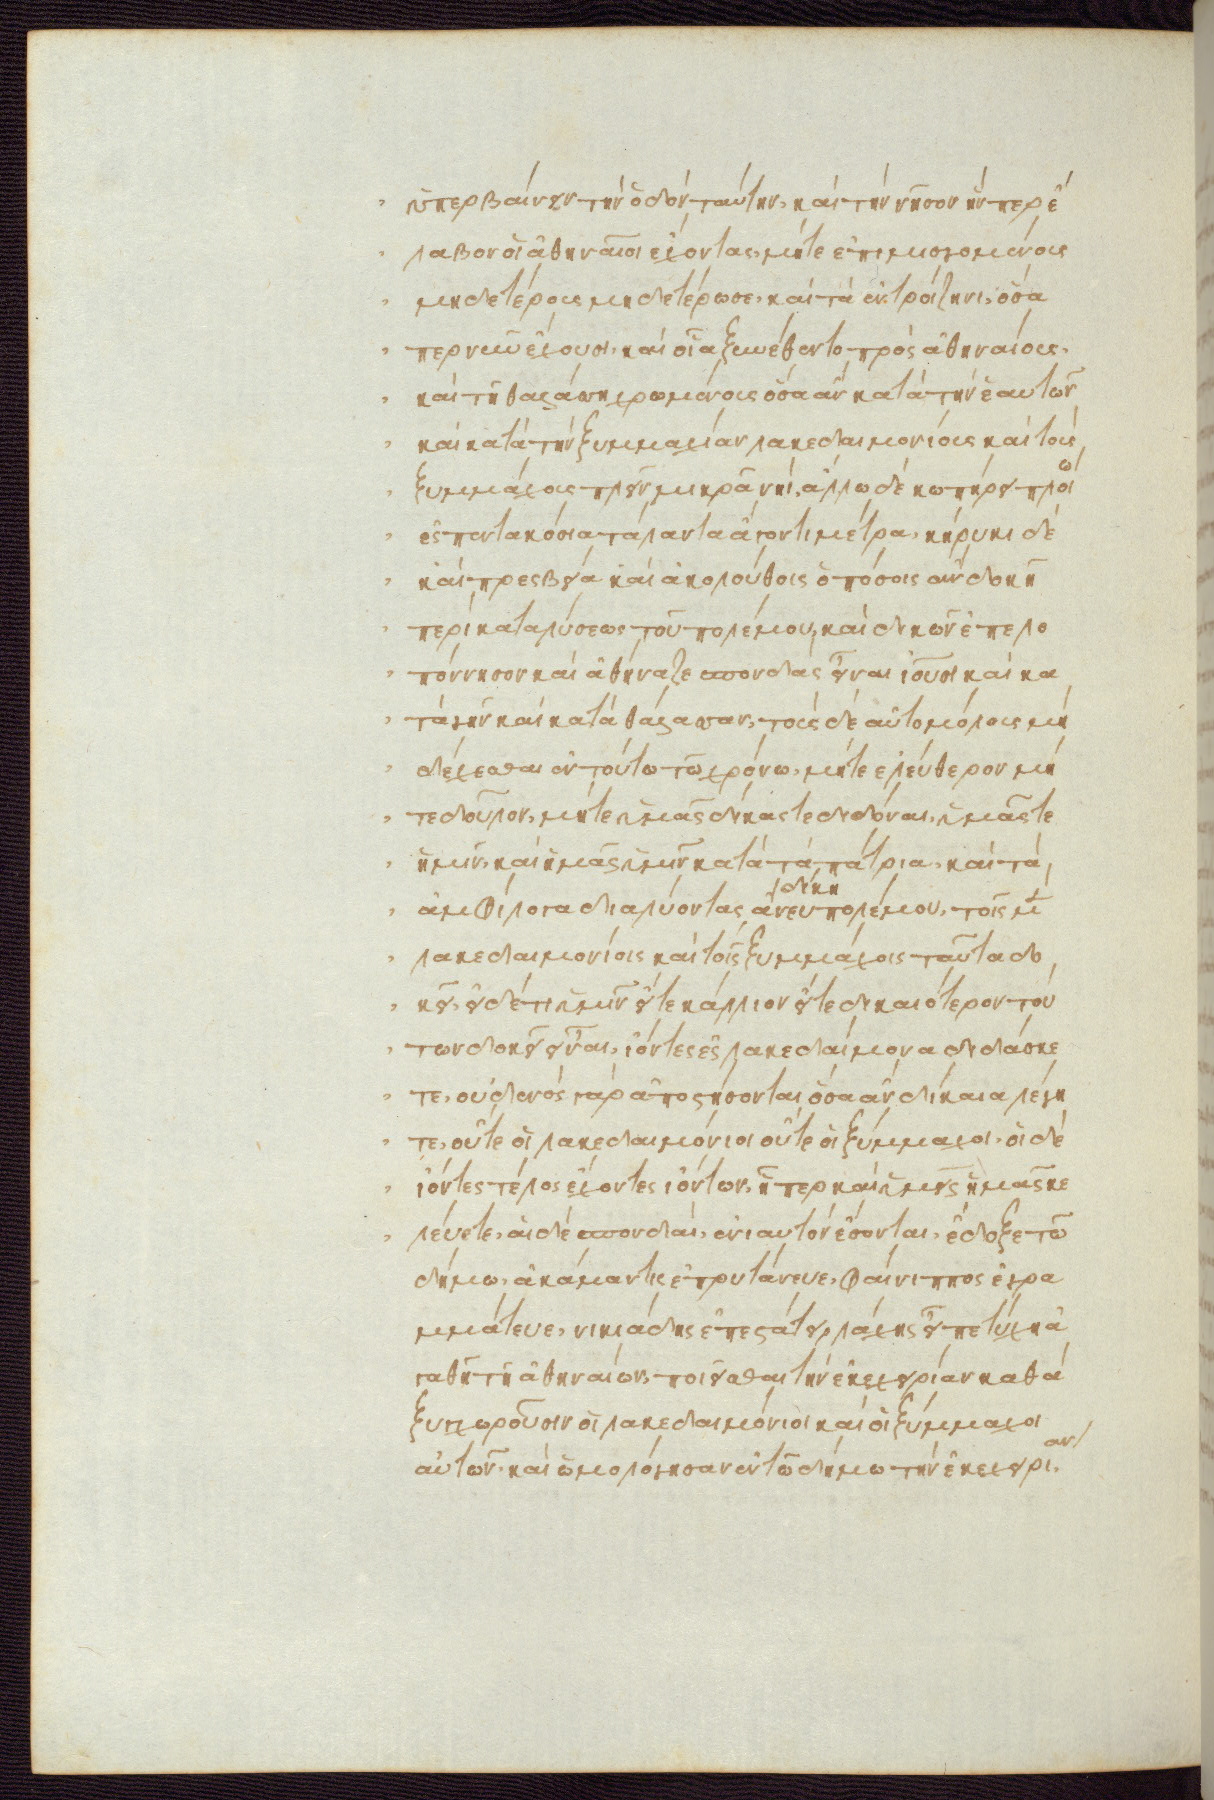 ὑπερβαίνειν τὴν ὁδὸν ταύτην, καὶ τὴν νῆσον ἥνπερ ἔ
λαβον οἱ ἀθηναῖοι ἔχοντας, μήτε ἐπιμισγομένοις
μηδετέροις μηδετέρωσε, καὶ τὰ ἐν τροιζῆνι, ὅσα
περ νῦν ἔχουσι, καὶ οἷα ξυνέθεντο πρὸς ἀθηναίοις,
καὶ τῆ θαλάσση χρωμένοις ὅσα ἂν κατὰ τὴν ἑαυτῶν
καὶ κατὰ τὴν ξυμμαχίαν λακεδαιμονίοις καὶ τοῖς
ξυμμάχοις πλεῖν μικρᾶ νηὶ, ἄλλω δὲ κωπήρει πλοίω
ἐς πεντακόσια τάλαντα ἄγοντι μέτρα, κήρυκι δὲ
καὶ πρεσβεία καὶ ἀκολούθοις ὁπόσοις ἂν δοκῆ
περὶ καταλύσεως τοῦ πολέμου, καὶ δικῶν ἐς πελο
πόννησον καὶ ἀθήναζε σπονδὰς εἶναι ἰοῦσι καὶ κα
τὰ γῆν καὶ κατὰ θάλασσαν, τοὺς δὲ αὐτομόλους μὴ
δέχεσθαι ἐν τούτω τῶ χρόνω, μήτε ἐλεύθερον μή
τε δοῦλον, μήτε ὑμᾶς δίκας τε διδόναι, ὑμᾶς τε
ἡμῖν, καὶ ἡμᾶς ὑμῖν κατὰ τὰ πάτρια, καὶ τὰ
ἀμφίλογα διαλύοντας δίκη ἄνευ πολέμου, τοῖς μὲν
λακεδαιμονίοις καὶ τοῖς ξυμμάχοις ταῦτα δο
κεῖ, εἰ δέ τι ὑμῖν εἴτε κάλλιον εἴτε δικαιότερον τού
των δοκεῖ εἶναι, ἰόντες ἐς λακεδαίμονα διδάσκε
τε, οὐδενὸς γὰρ ἀποστήσονται ὅσα ἂν δίκαια λέγη
τε, οὔτε οἱ λακεδαιμόνιοι οὔτε οἱ ξύμμαχοι, οἱ δὲ
ἰόντες τέλος ἔχοντες ἰόντων, ἧπερ καὶ ὑμεῖς ἡμᾶς κε
λεύετε, αἱ δὲ σπονδαὶ, ἐνιαυτὸν ἔσονται, ἔδοξε τῶ
δήμω, ἀκάμαντις ἐπρυτάνευε, φαίνιππος ἐγρα
μμάτευε, νικιάδης ἐπεστάτει, λάχης εἶπε τύχη ἀ
γαθῆ τῆ ἀθηναίων, ποιεῖσθαι τὴν ἐκεχειρίαν καθὰ
ξυγχωροῦσιν οἱ λακεδαιμόνιοι καὶ οἱ ξύμμαχοι
αὐτῶν, καὶ ὡμολόγησαν ἐν τῶ δήμω τὴν ἐκεχειρίαν